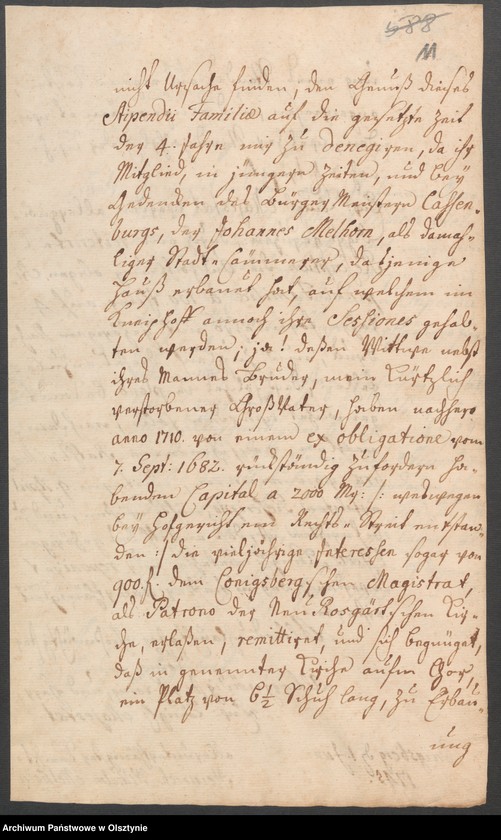 588
11
nicht Ursache finden, den Genuß dieses
Stipendii Familiæ auf die gesetzte Zeit
der 4. Jahre mir zu denegiren, da ihr
Mitglied, in jüngern Zeiten, und bey
Gedencken des Bürger Meistern Cassen-
burgs, der Johannes Melhorn, als damah-
liger Stadt-Cämmerer, dasjenige
Hauß erbauet hat, auf welchem im
Kneiphoff annoch ihre Sessiones gehal-
ten werden; ja! deßen Wittwe nebst
ihres Mannes Bruder, mein kürtzlich
verstorbener GroßVater, haben nachhero
anno 1710. von einem ex obligatione vom
7. Sept: 1682. rückständig zufordern ha-
benden Capital a 2000 Mr: /: weswegen
bey Hofgericht ein Rechts-Streit entstan-
den :/ die vieljährige Interessen sogar von
900.f. dem Conigsbergschen Magistrat,
als Patrono der Neu Rosgärtschen Kir-
che, erlaßen, remittiret, und sich begnüget,
daß in genennter Kirche aufm Chor,
ein Platz von 6½ Schuh lang, zu Erbau-
ung
Archiwum Państwowe w Olsztynie